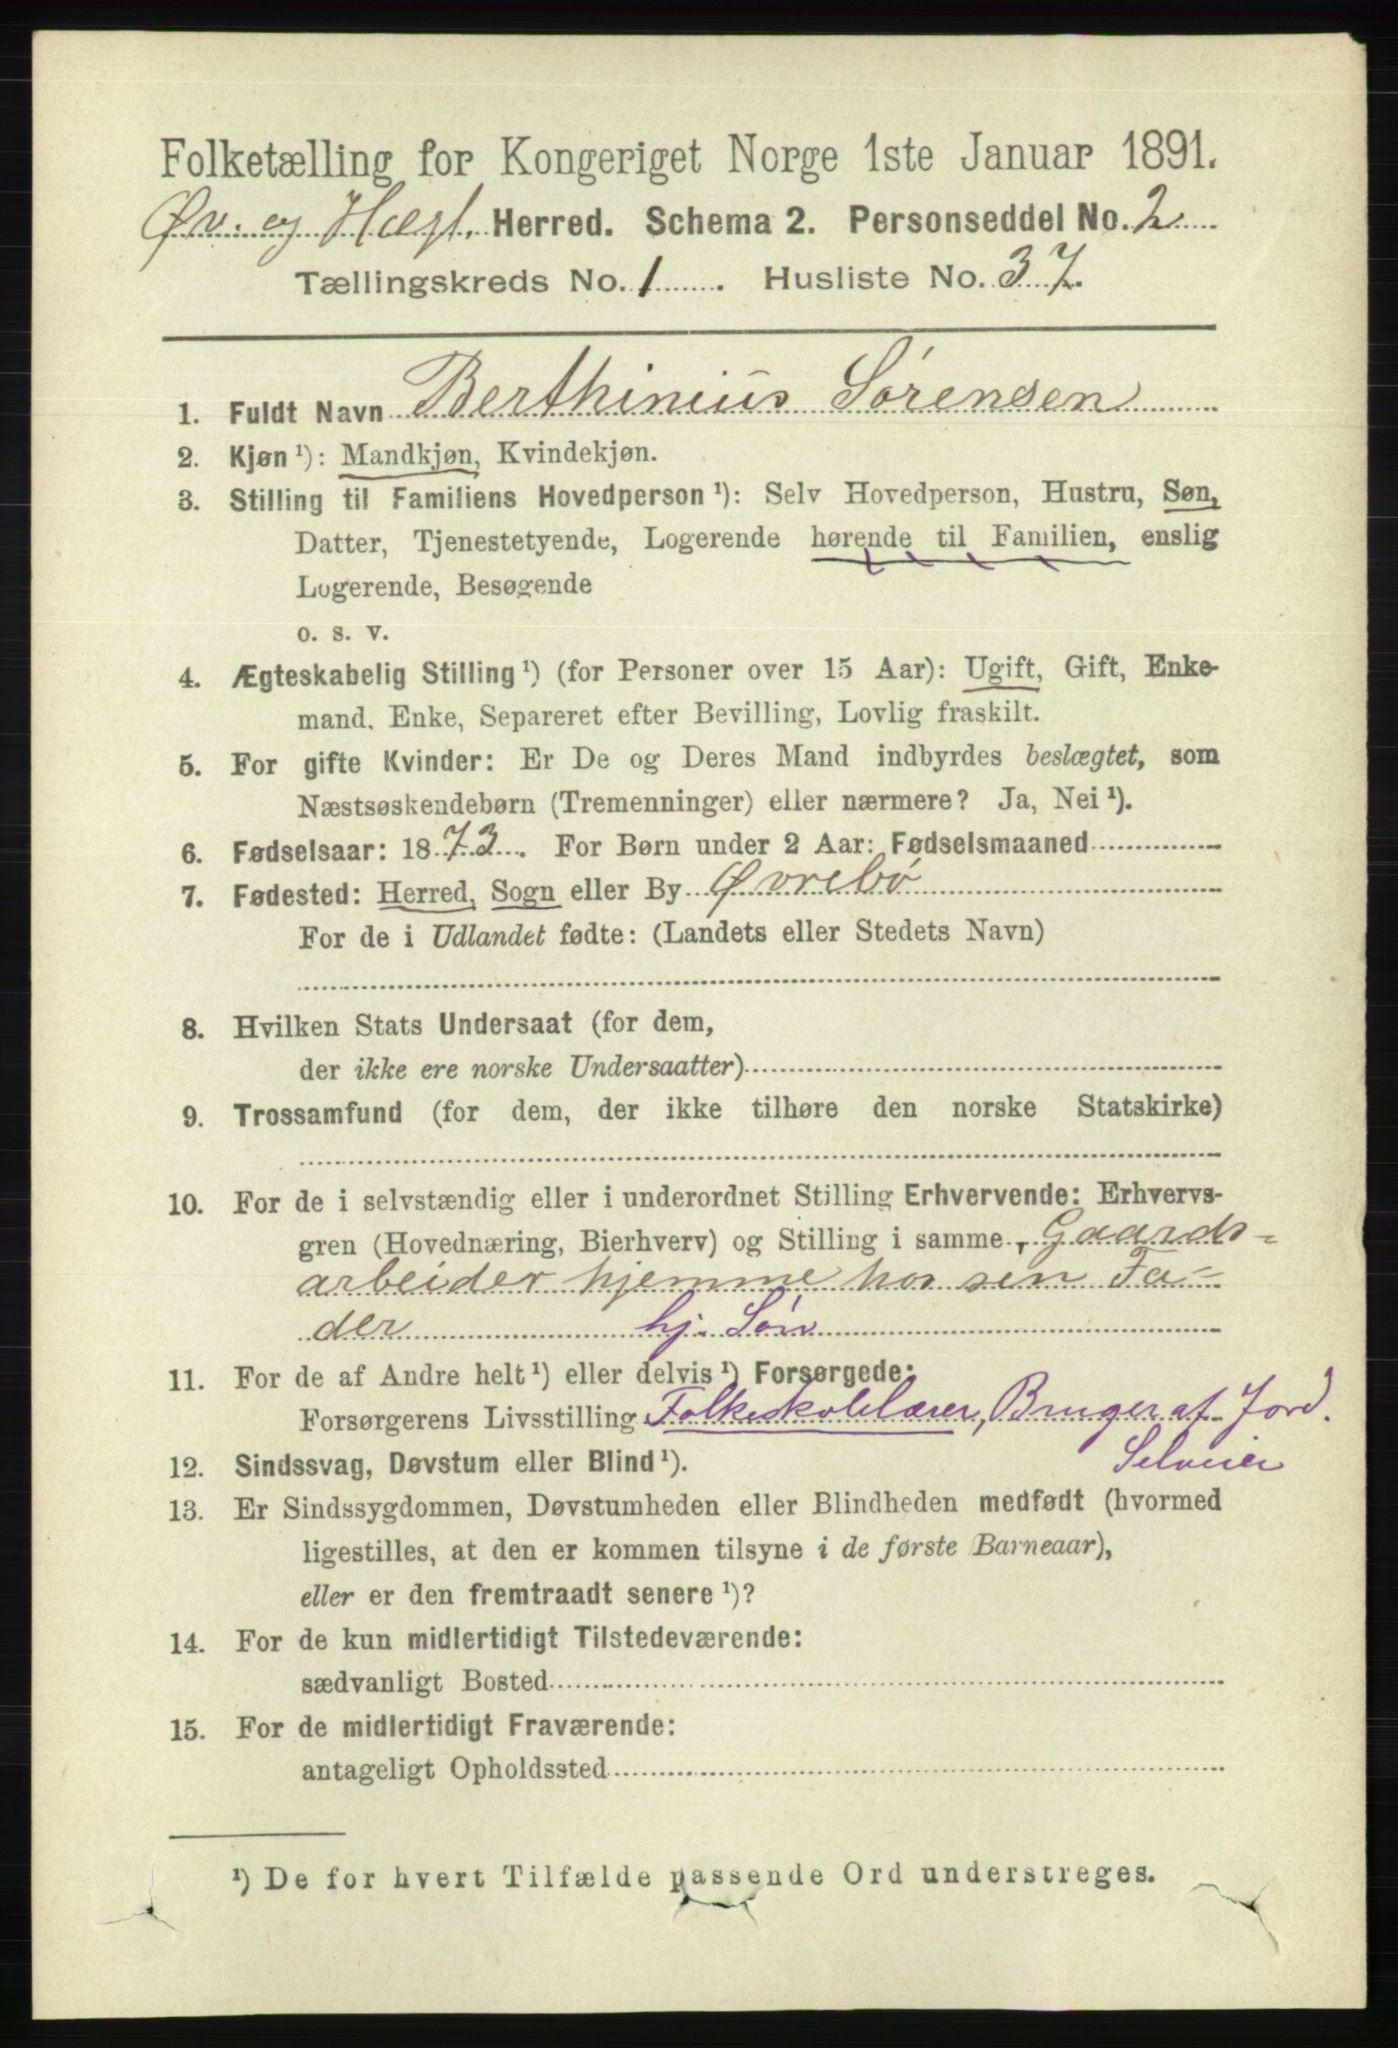 Folketælling for Kongeriget Norge 1ste Januar 1891.
Øv. og Hægl. Herred. Schema 2. Personseddel No. 2
Tællingskreds No. 1. Husliste No. 37.
1. Fuldt Navn Berthinius Sørensen
2. Kjøn ¹): Mandkjøn, Kvindekjøn.
3. Stilling til Familiens Hovedperson ¹): Selv Hovedperson, Hustru, Søn,
Datter, Tjenestetyende, Logerende hørende til Familien, enslig
Logerende, Besøgende
o. s. v.
4. Ægteskabelig Stilling ¹) (for Personer over 15 Aar): Ugift, Gift, Enke-
mand, Enke, Separeret efter Bevilling, Lovlig fraskilt.
5. For gifte Kvinder: Er De og Deres Mand indbyrdes beslægtet, som
Næstsøskendebørn (Tremenninger) eller nærmere? Ja, Nei ¹).
6. Fødselsaar: 1873. For Børn under 2 Aar: Fødselsmaaned
7. Fødested: Herred, Sogn eller By Øvrebø
For de i Udlandet fødte: (Landets eller Stedets Navn)
8. Hvilken Stats Undersaat (for dem,
der ikke ere norske Undersaatter)
9. Trossamfund (for dem, der ikke tilhøre den norske Statskirke)
10. For de i selvstændig eller i underordnet Stilling Erhvervende: Erhvervs-
gren (Hovednæring, Bierhverv) og Stilling i samme, Gaards-
arbeider hjemme hos sen Fa-
der hj. Søn
11. For de af Andre helt ¹) eller delvis ¹) Forsørgede:
Forsørgerens Livsstilling Folkeskolelærer, Bruger af Jord.
Selveier
12. Sindssvag, Døvstum eller Blind ¹).
13. Er Sindssygdommen, Døvstumheden eller Blindheden medfødt (hvormed
ligestilles, at den er kommen tilsyne i de første Barneaar),
eller er den fremtraadt senere ¹)?
14. For de kun midlertidigt Tilstedeværende:
sædvanligt Bosted
15. For de midlertidigt Fraværende:
antageligt Opholdssted
¹) De for hvert Tilfælde passende Ord understreges.